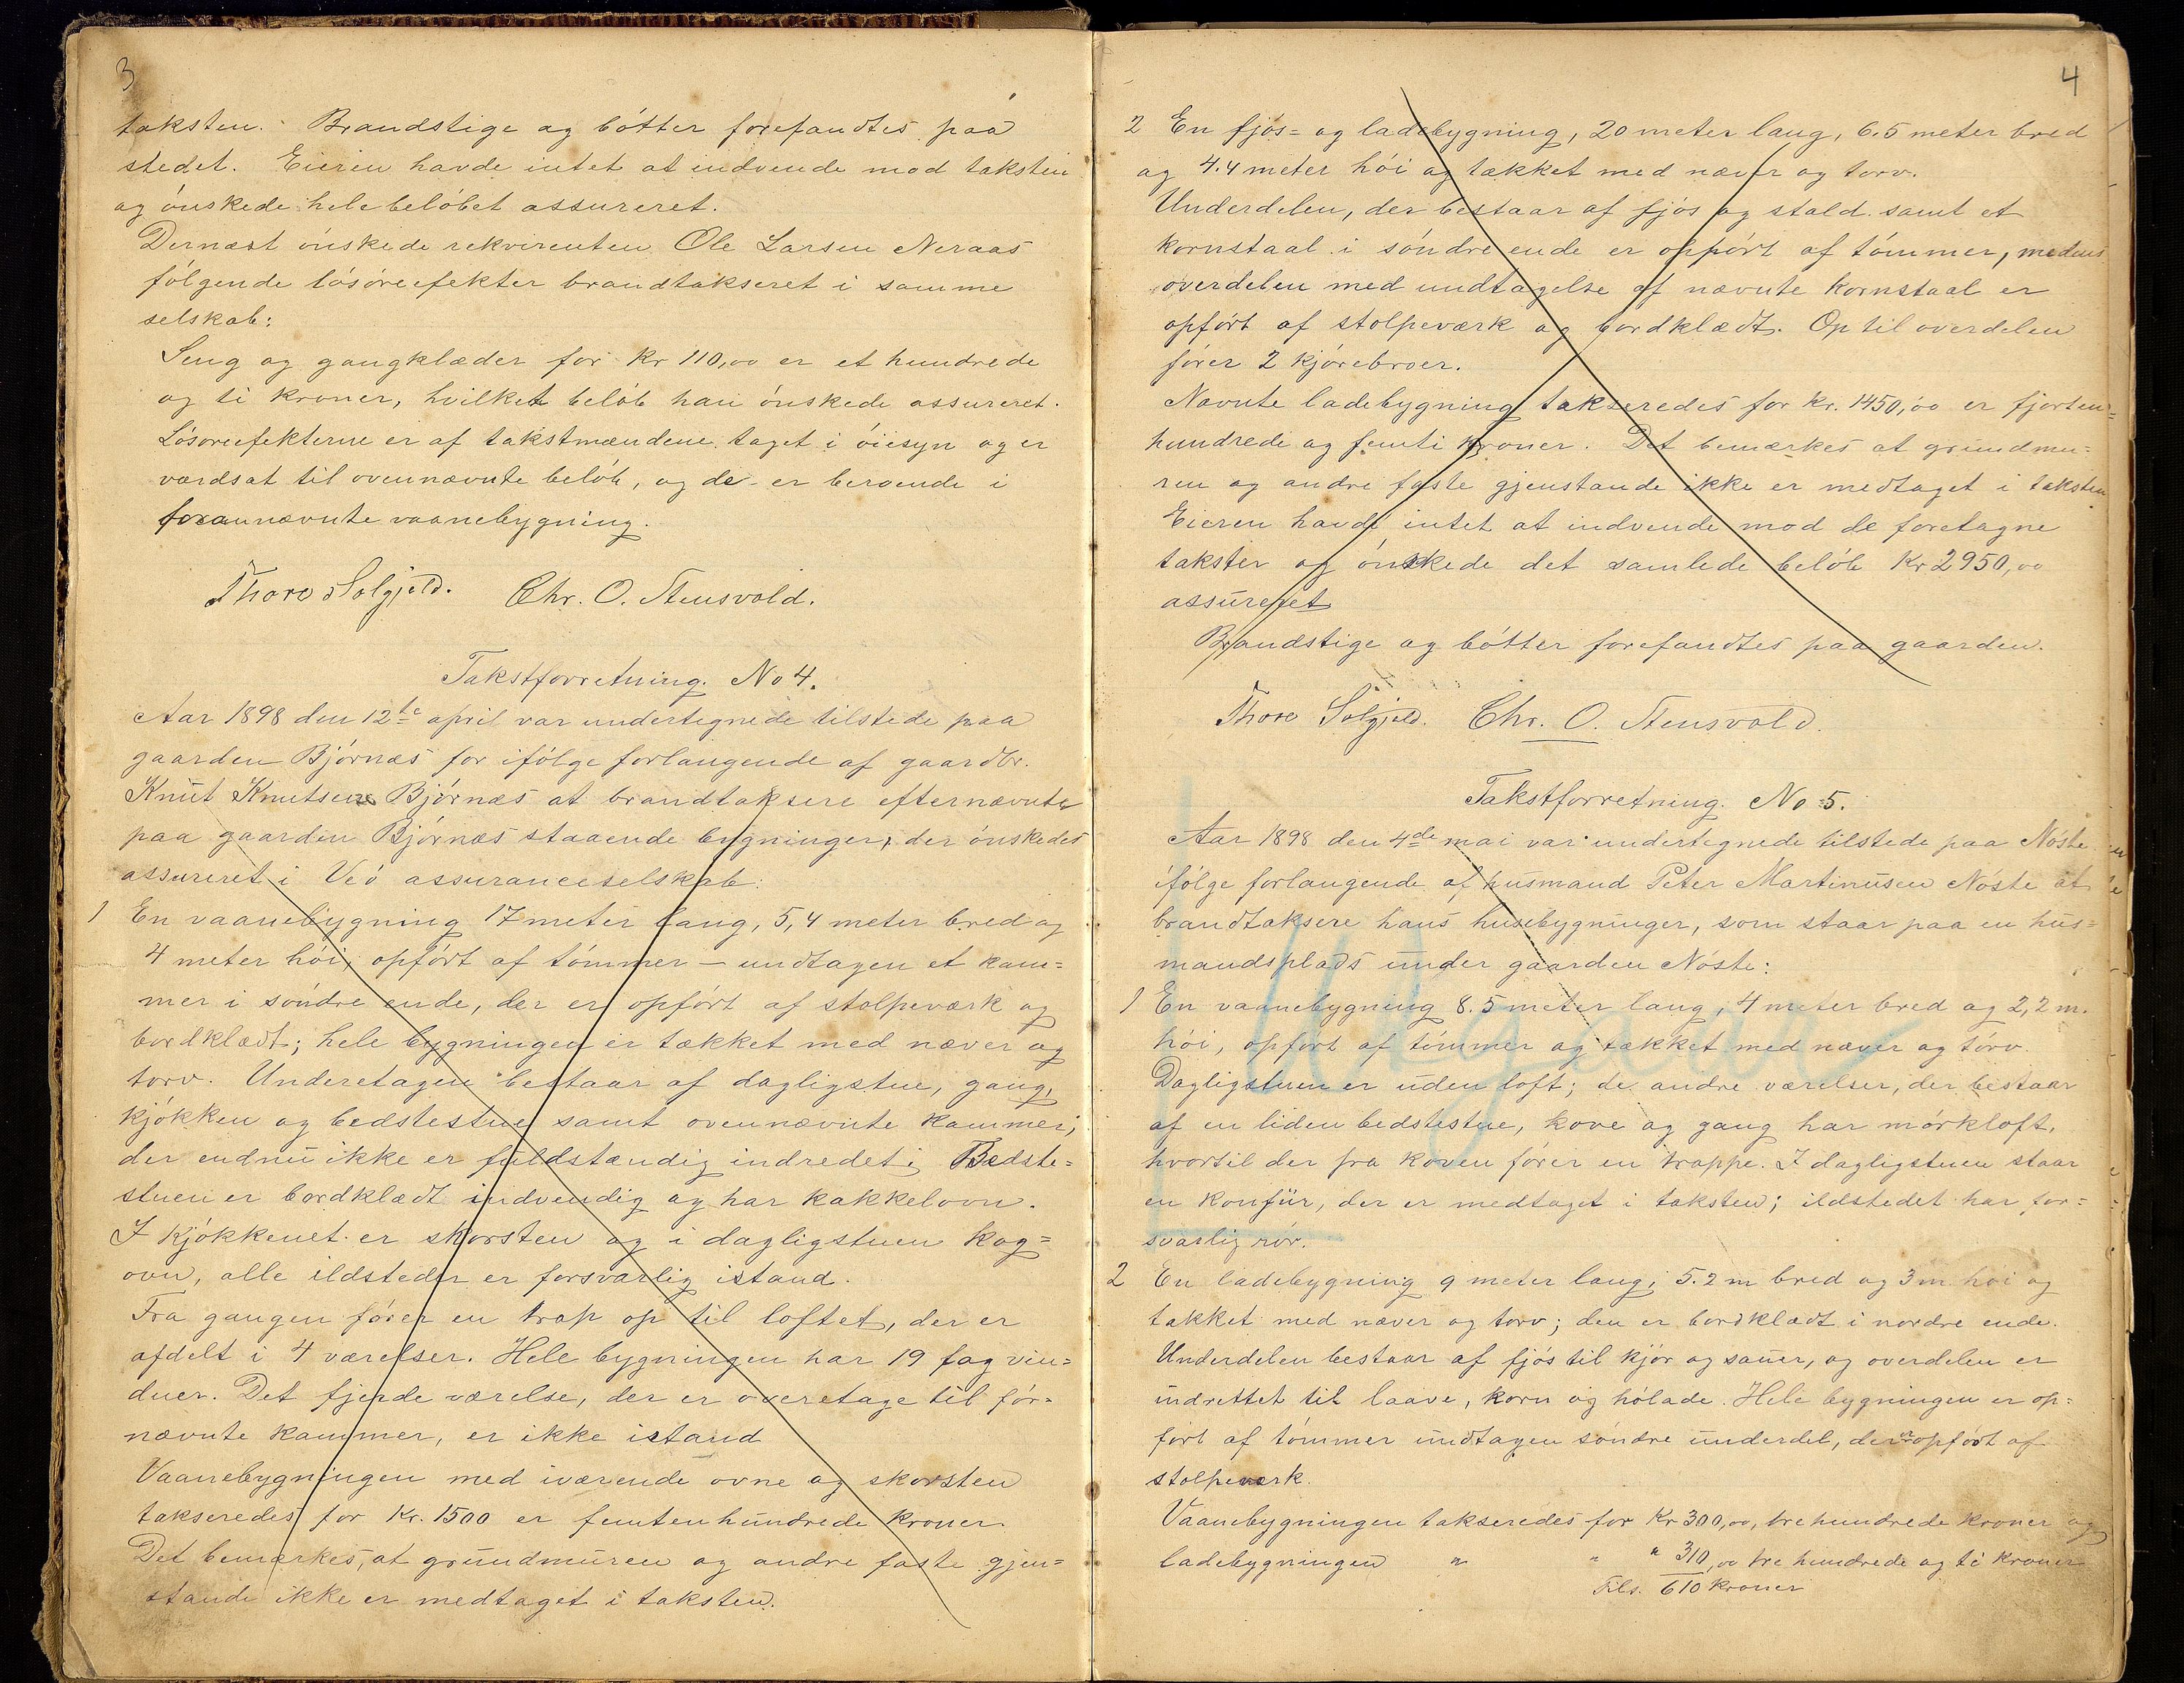 3
taksten. Brandstige og bótter forefandtes paa
stedet. Eieren havde intet at indvende mod taksten
og ónskede hele belóbet assureret.
Dernæst ónskede rekvirenten Ole Larsen Neraas
fólgende lósóreefekter brandtakseret i samme
selskab:
Seng og gangklæder for kr 110,00 er et hundrede
og ti kroner, hvilket belób han ónskede assureret.
Lósóreefekterne er af takstmændene taget i óiesyn og er
værdsat til ovennævnte belób, og de er beroende i
forannævnte vaanebygning.
Thore Solgjeld. Chr. O. Stensvold.
Takstforretning. No 4.
Aar 1898 den 12te april var undertegnede tilstede paa
gaarden Bjórnæs for ifólge forlangende af gaardbr.
Knut Knutsen Bjórnæs at brandtaksere efternævnte
paa gaarden Bjórnæs staaende bygninger, der ónskedes
assureret i Veó assuranceselskab:
1 En vaanebygning 17 meter lang, 5,4 meter bred og
4 meter hói, opfórt af tómmer — undtagen et kam=
mer i sóndre ende, der er opfórt af stolpeværk og
bordklædt; hele bygningen er tækket med næver og
torv. Underetagen bestaar af dagligstue, gang,
kjókken og bedstestue samt ovennævnte kammer,
der endnu ikke er fuldstændig indredet; Bedste=
stuen er bordklædt indvendig og har kakkelovn.
I kjókkenet er skorsten og i dagligstuen kog=
ovn, alle ildsteder er forsvarlig istand.
Fra gangen fórer en trap op til loftet, der er
afdelt i 4 værelser. Hele bygningen har 19 fag vin=
duer. Det fjerde værelse, der er overetage til fór=
nævnte kammer, er ikke istand
Vaanebygningen med iværende ovne og skorsten
takseredes for Kr. 1500 er femtenhundrede kroner.
Det bemærkes, at grundmuren og andre faste gjen=
stande ikke er medtaget i taksten.
4
2 En fjós= og ladebygning, 20 meter lang, 6.5 meter bred
og 4.4 meter hói og tækket med næver og torv.
Underdelen, der bestaar af fjós og stald samt et
kornstaal i sóndre ende er opfórt af tómmer, medens
overdelen med undtagelse af nævnte kornstaal er
opfórt af stolpeværk og bordklædt. Op til overdelen
fórer 2 kjórebroer.
Nævnte ladebygning takseredes for kr. 1450,00 er fjorten=
hundrede og femti kroner. Det bemærkes at grundmu=
ren og andre faste gjenstande ikke er medtaget i taksten
Eieren havde intet at indvende mod de foretagne
takster og ónskede det samlede belób Kr 2950,00
assureret
Brandstige og bótter forefandtes paa gaarden.
Thore Solgjeld. Chr. O. Stensvold.
Takstforretning. No 5.
Aar 1898 den 4de mai var undertegnede tilstede paa Nóste
ifólge forlangende af husmand Peter Martinusen Nóste at
brandtaksere hans husebygninger, som staar paa en hus=
mandsplads under gaarden Nóste:
1 En vaanebygning 8.5 meter lang, 4 meter bred og 2,2 m.
hói, opfórt af tómmer og tækket med næver og tórv.
Dagligstuen er uden loft; de andre værelser, der bestaar
af en liden bedstestue, kove og gang har mórkloft,
hvortil der fra koven fórer en trappe. I dagligstuen staar
en konfür, der er medtaget i taksten; ildstedet har for=
svarlig rór.
2 En ladebygning 9 meter lang, 5.2 m bred og 3 m hói og
tækket med næver og torv; den er bordklædt i nordre ende.
Underdelen bestaar af fjós til kjór og sauer, og overdelen er
indrettet til laave, korn og hólade. Hele bygningen er op=
fórt af tómmer undtagen sóndre underdel, der er opfórt af
stolpeværk.
Vaanebygningen takseredes for Kr 300,00, tre hundrede kroner og
ladebygningen " " " 310,00 tre hundrede og ti kroner
Tils. 610 kroner